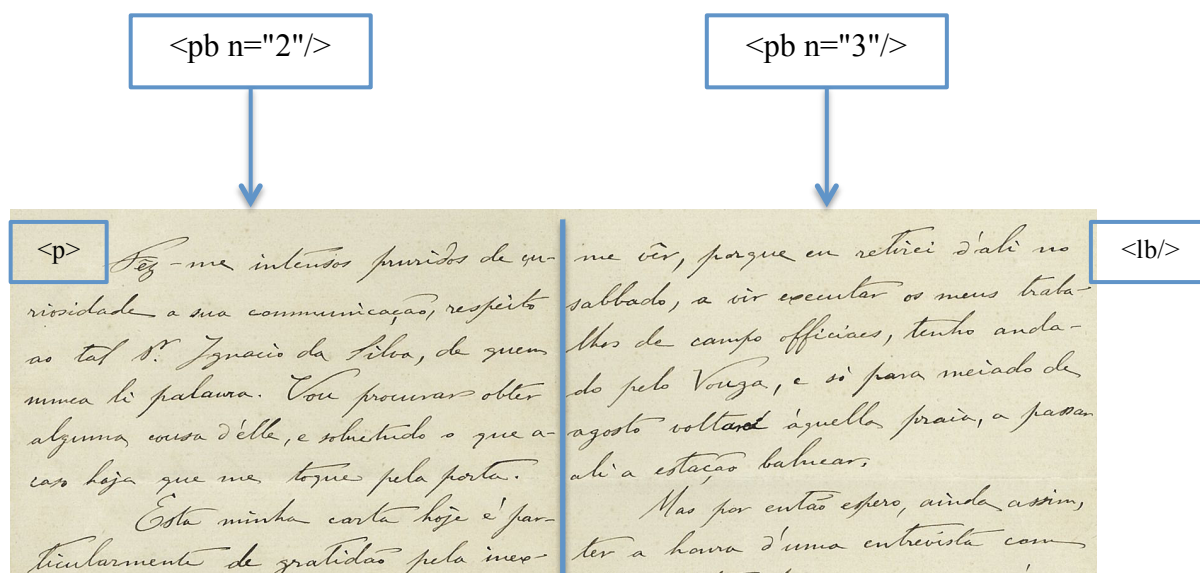 <pb n="2"/>
<pb n="3"/>
<p>
Fêz-me intensos pruridos de cu-
riosidade a sua communicação, respeito
ao tal Sr. Ignacio da Silva, de quem
nunca li palavra. Vou procurar obter
alguma cousa d'elle, e sobretudo o que a-
caso haja que me toque pela porta.
Esta minha carta hoje é par-
ticularmente de gratidão pela inex-
me vêr, porque eu retirei d'ali no
<lb/>
sabbado, a vir executar os meus traba-
lhos de campo officiaes, tenho anda-
do pelo Vouga, e só para meiado de
agosto voltarei áquella praia, a passar
ali a estação balnear.
Mas por então espero, ainda assim,
ter a honra d'uma entrevista com